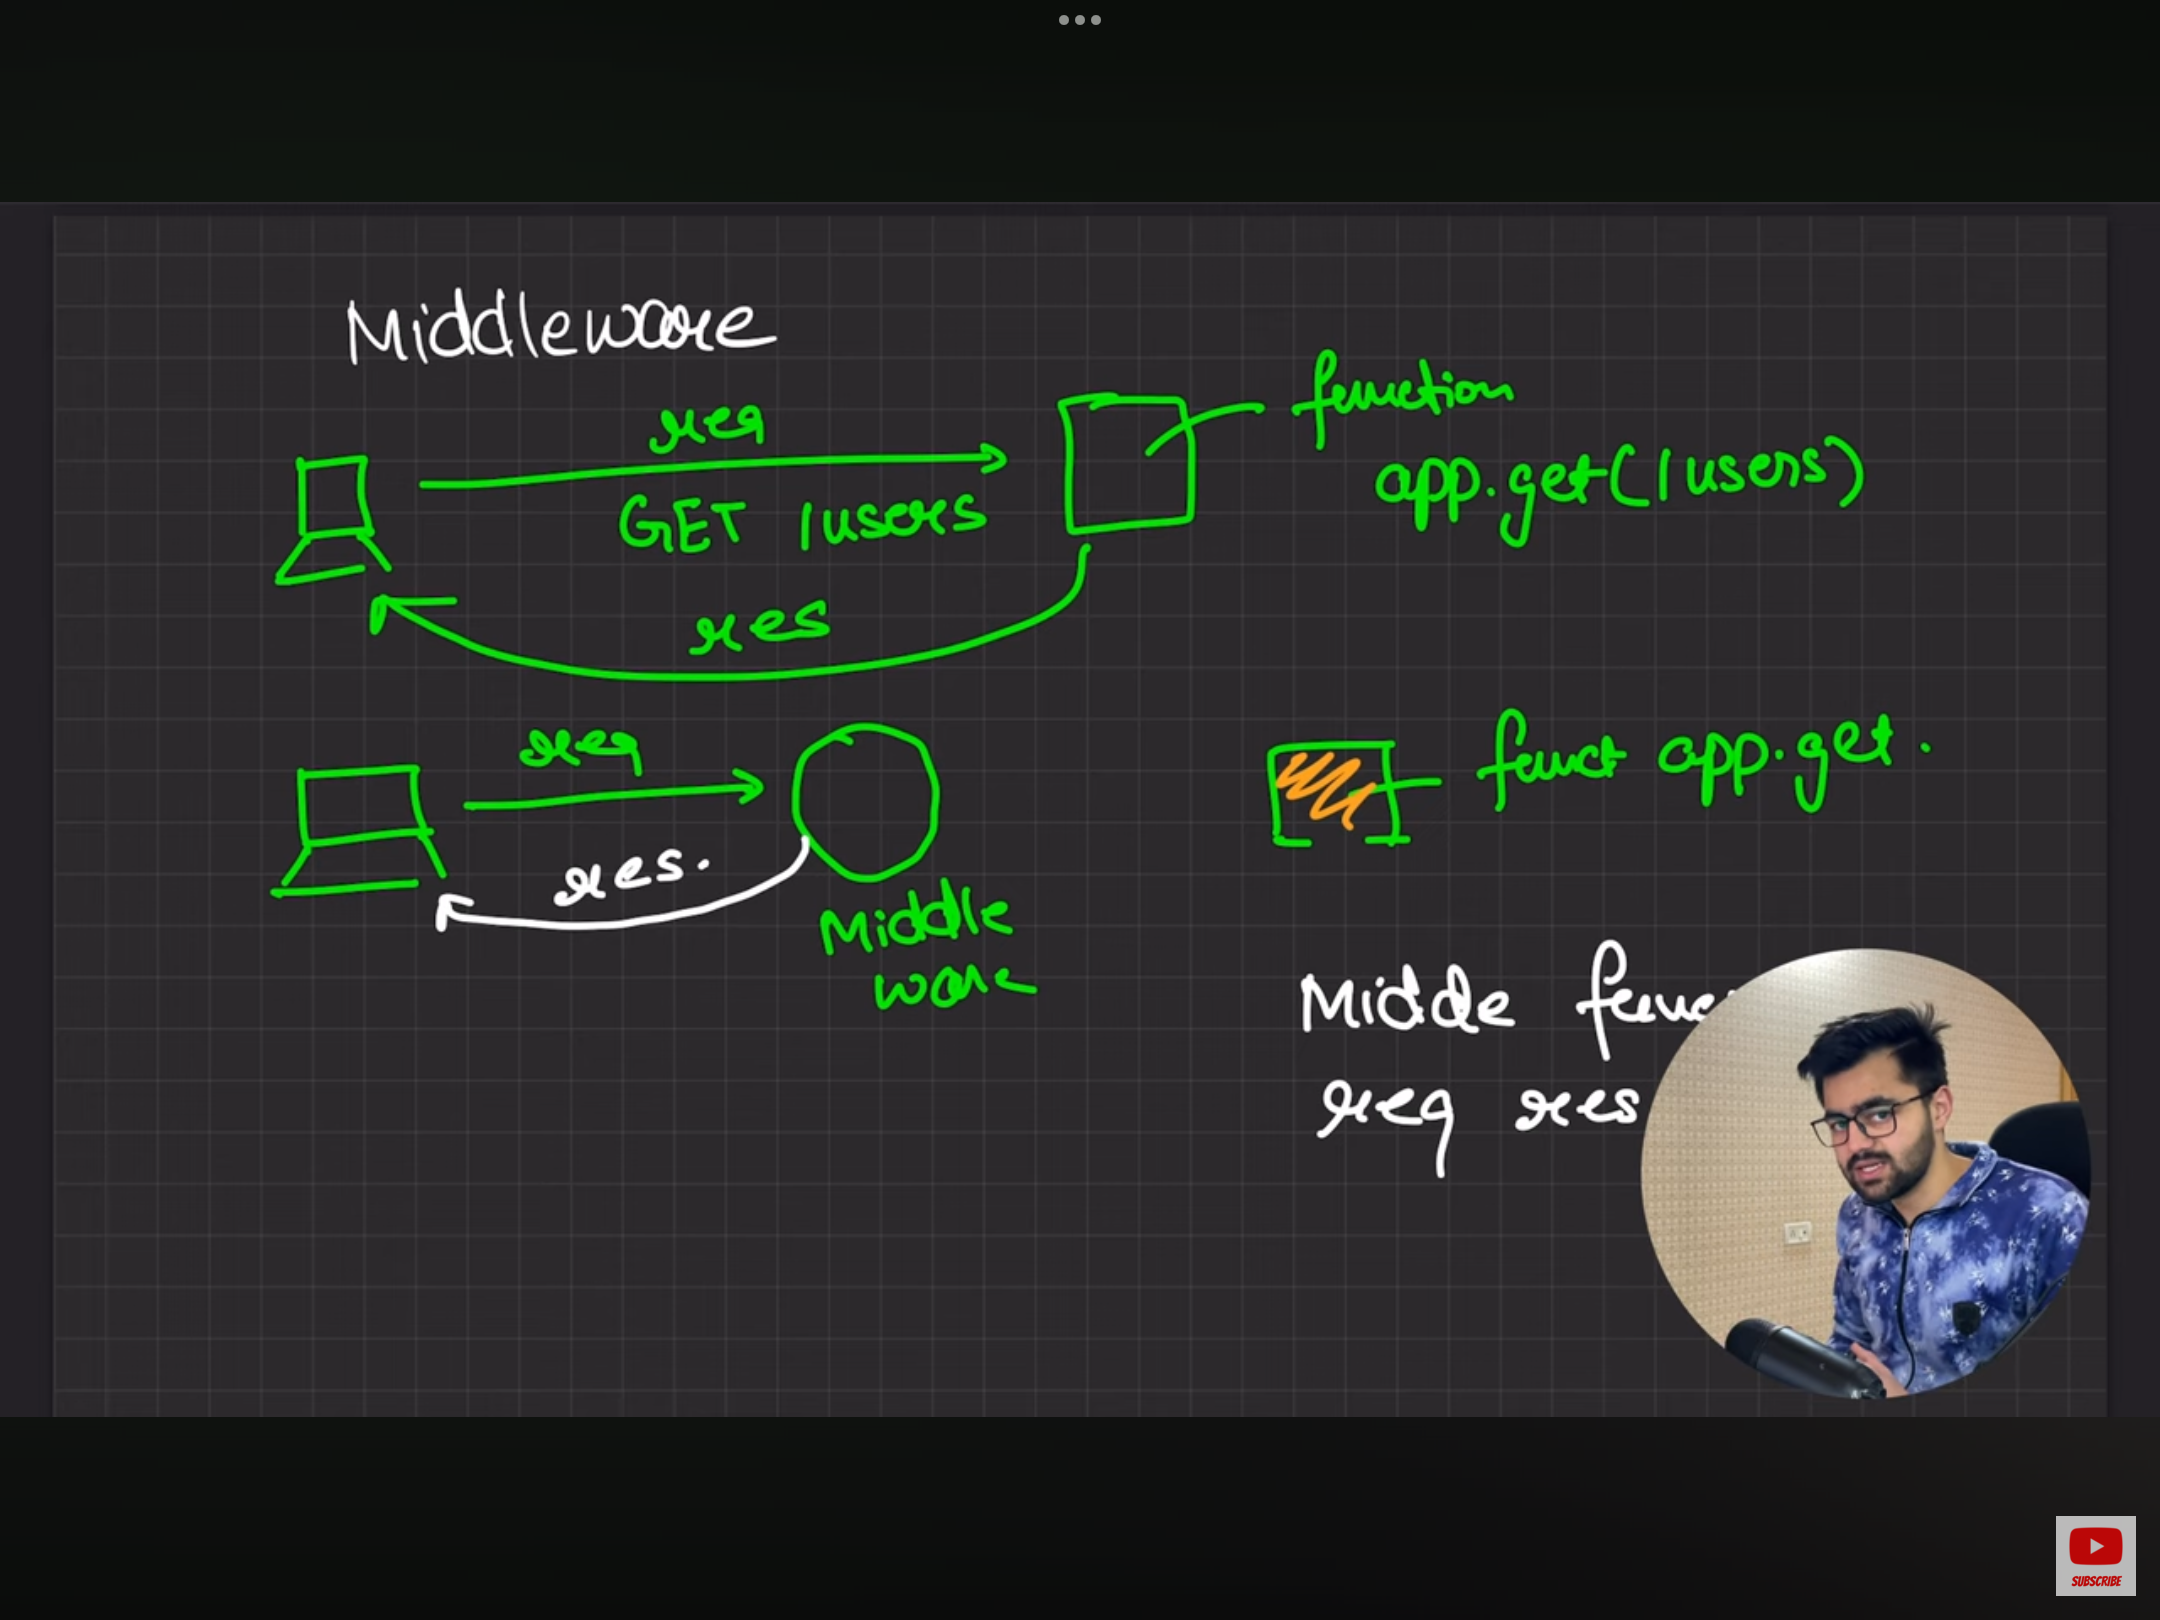 Middleware
req
GET /users
function
app.get(/users)
res
req
res.
Middle
ware
funct app.get.
Midde
req res
SUBSCRIBE